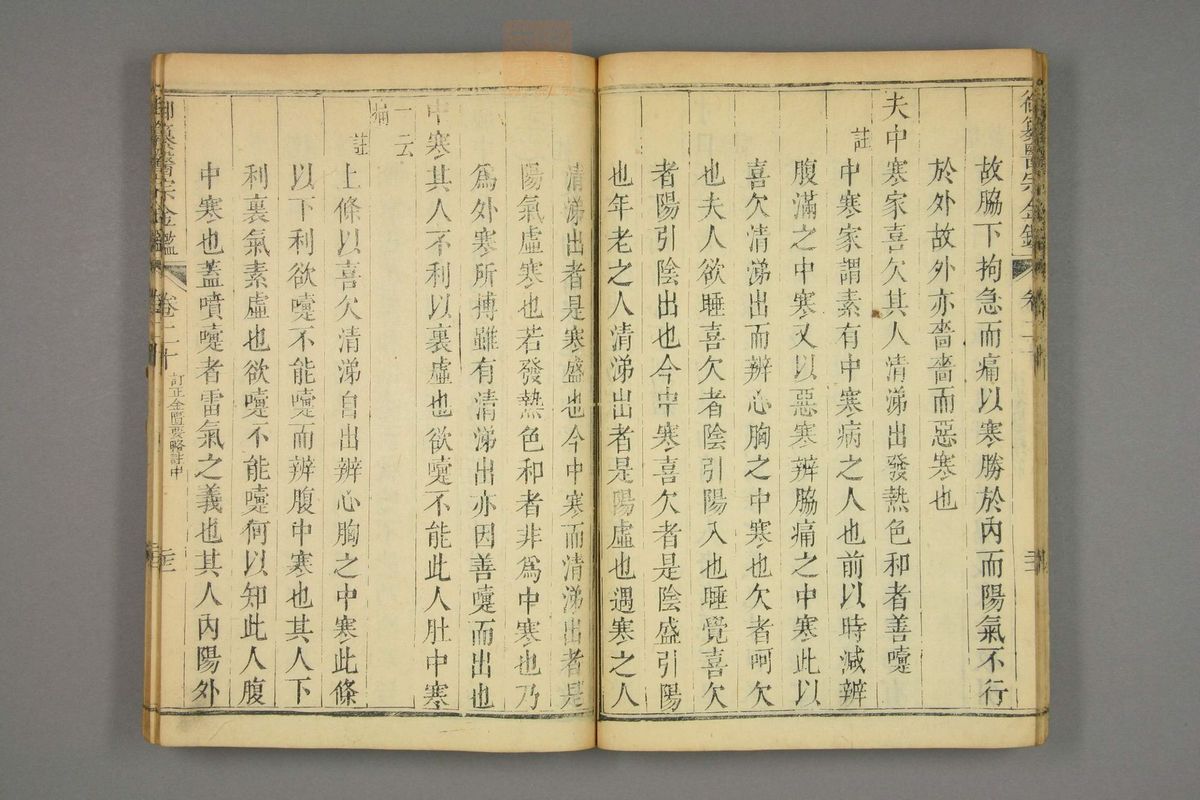 御纂醫宗金鑑 卷二十
故脇下拘急而痛以寒勝於內而陽氣不行
於外故外亦嗇嗇而惡寒也
夫中寒家喜欠其人清涕出發熱色和者善嚏
註
中寒家謂素有中寒病之人也前以時減辨
腹滿之中寒又以惡寒辨脇痛之中寒此以
喜欠清涕出而辨心胸之中寒也欠者呵欠
也夫人欲睡喜欠者陰引陽入也睡覺喜欠
者陽引陰出也今中寒喜欠者是陰盛引陽
也年老之人清涕出者是陽虛也遇寒之人
清涕出者是寒盛也今中寒而清涕出者是
陽氣虛寒也若發熱色和者非爲中寒也乃
爲外寒所搏雖有清涕出亦因善嚏而出也
中寒其人下利以裏虛也欲嚏不能此人肚中寒
一云
痛
註
上條以喜欠清涕自出辨心胸之中寒此條
以下利欲嚏不能嚏而辨腹中寒也其人下
利裏氣素虛也欲嚏不能嚏何以知此人腹
中寒也蓋噴嚏者雷氣之義也其人內陽外
御纂醫宗金鑑 卷二十 訂正金匱要略註中